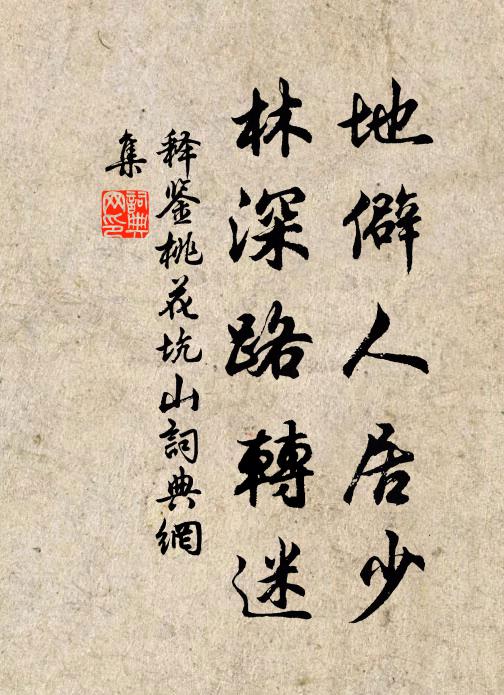 地僻人居少
林深路轉迷
释鉴桃花坑山詞典網
集
詞典
网印